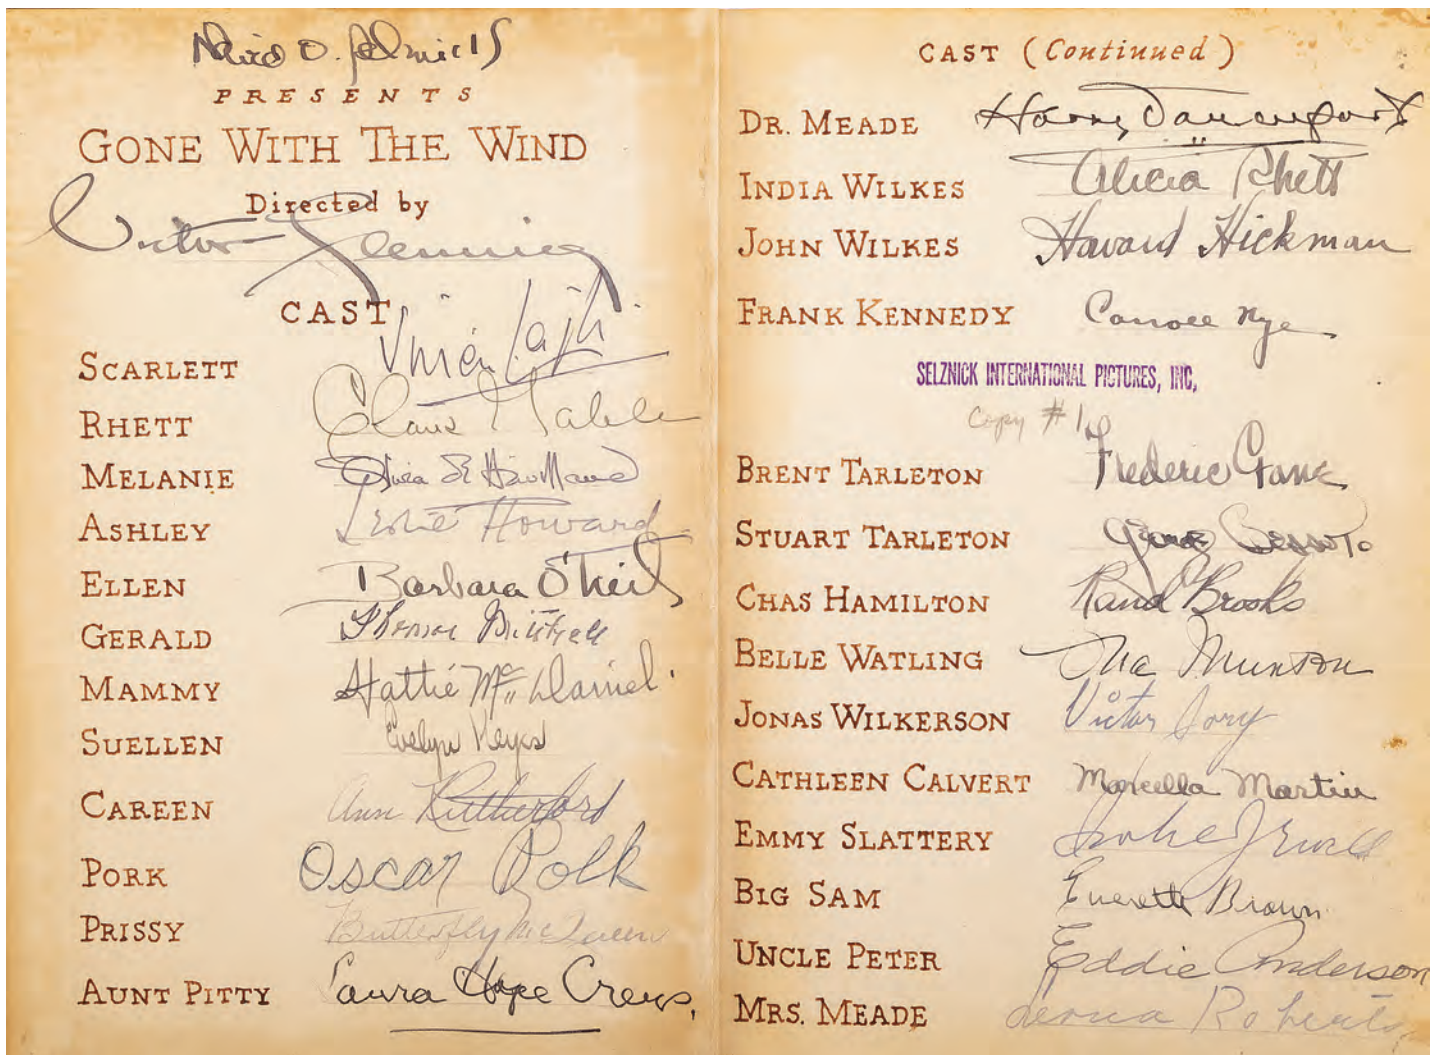 David O. Selznick
PRESENTS
GONE WITH THE WIND
Directed by
Victor Fleming
CAST
SCARLETT Vivien Leigh
RHETT Clark Gable
MELANIE Olivia de Havilland
ASHLEY Leslie Howard
ELLEN Barbara O'Neil
GERALD Thomas Mitchell
MAMMY Hattie McDaniel
SUELLEN Evelyn Keyes
CAREEN Ann Rutherford
PORK Oscar Polk
PRISSY Butterfly McQueen
AUNT PITTY Laura Hope Crews
CAST (Continued)
DR. MEADE Harry Davenport
INDIA WILKES Alicia Rhett
JOHN WILKES Howard Hickman
FRANK KENNEDY Carroll Nye
SELZNICK INTERNATIONAL PICTURES, INC.
Copy #1
BRENT TARLETON Frederic Crane
STUART TARLETON George Bessolo
CHAS HAMILTON Rand Brooks
BELLE WATLING Ona Munson
JONAS WILKERSON Victor Jory
CATHLEEN CALVERT Marcella Martin
EMMY SLATTERY Isabel Jewell
BIG SAM Everett Brown
UNCLE PETER Eddie Anderson
MRS. MEADE Leona Roberts